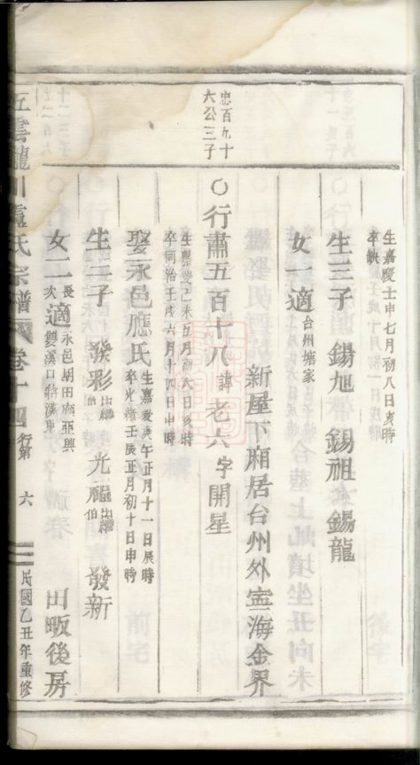 生嘉慶壬申七月初八日亥時
卒缺
生三子 錫旭 錫祖 錫龍
女一適台州塘家
新屋下廂居台州外寧海金界
忠百九十
六公三子
○行蕭五百十八諱老六字開星
卒同治壬戌六月十四日申時
娶永邑應氏
生嘉慶庚午正月十一日辰時
卒光緒壬辰正月初十日申時
生三子 發彩 光福 發新
女二
長適永邑胡田
次雙溪口
田畈後房
五雲龍川盧氏宗譜
卷十四
行第
六
民國乙丑年重修